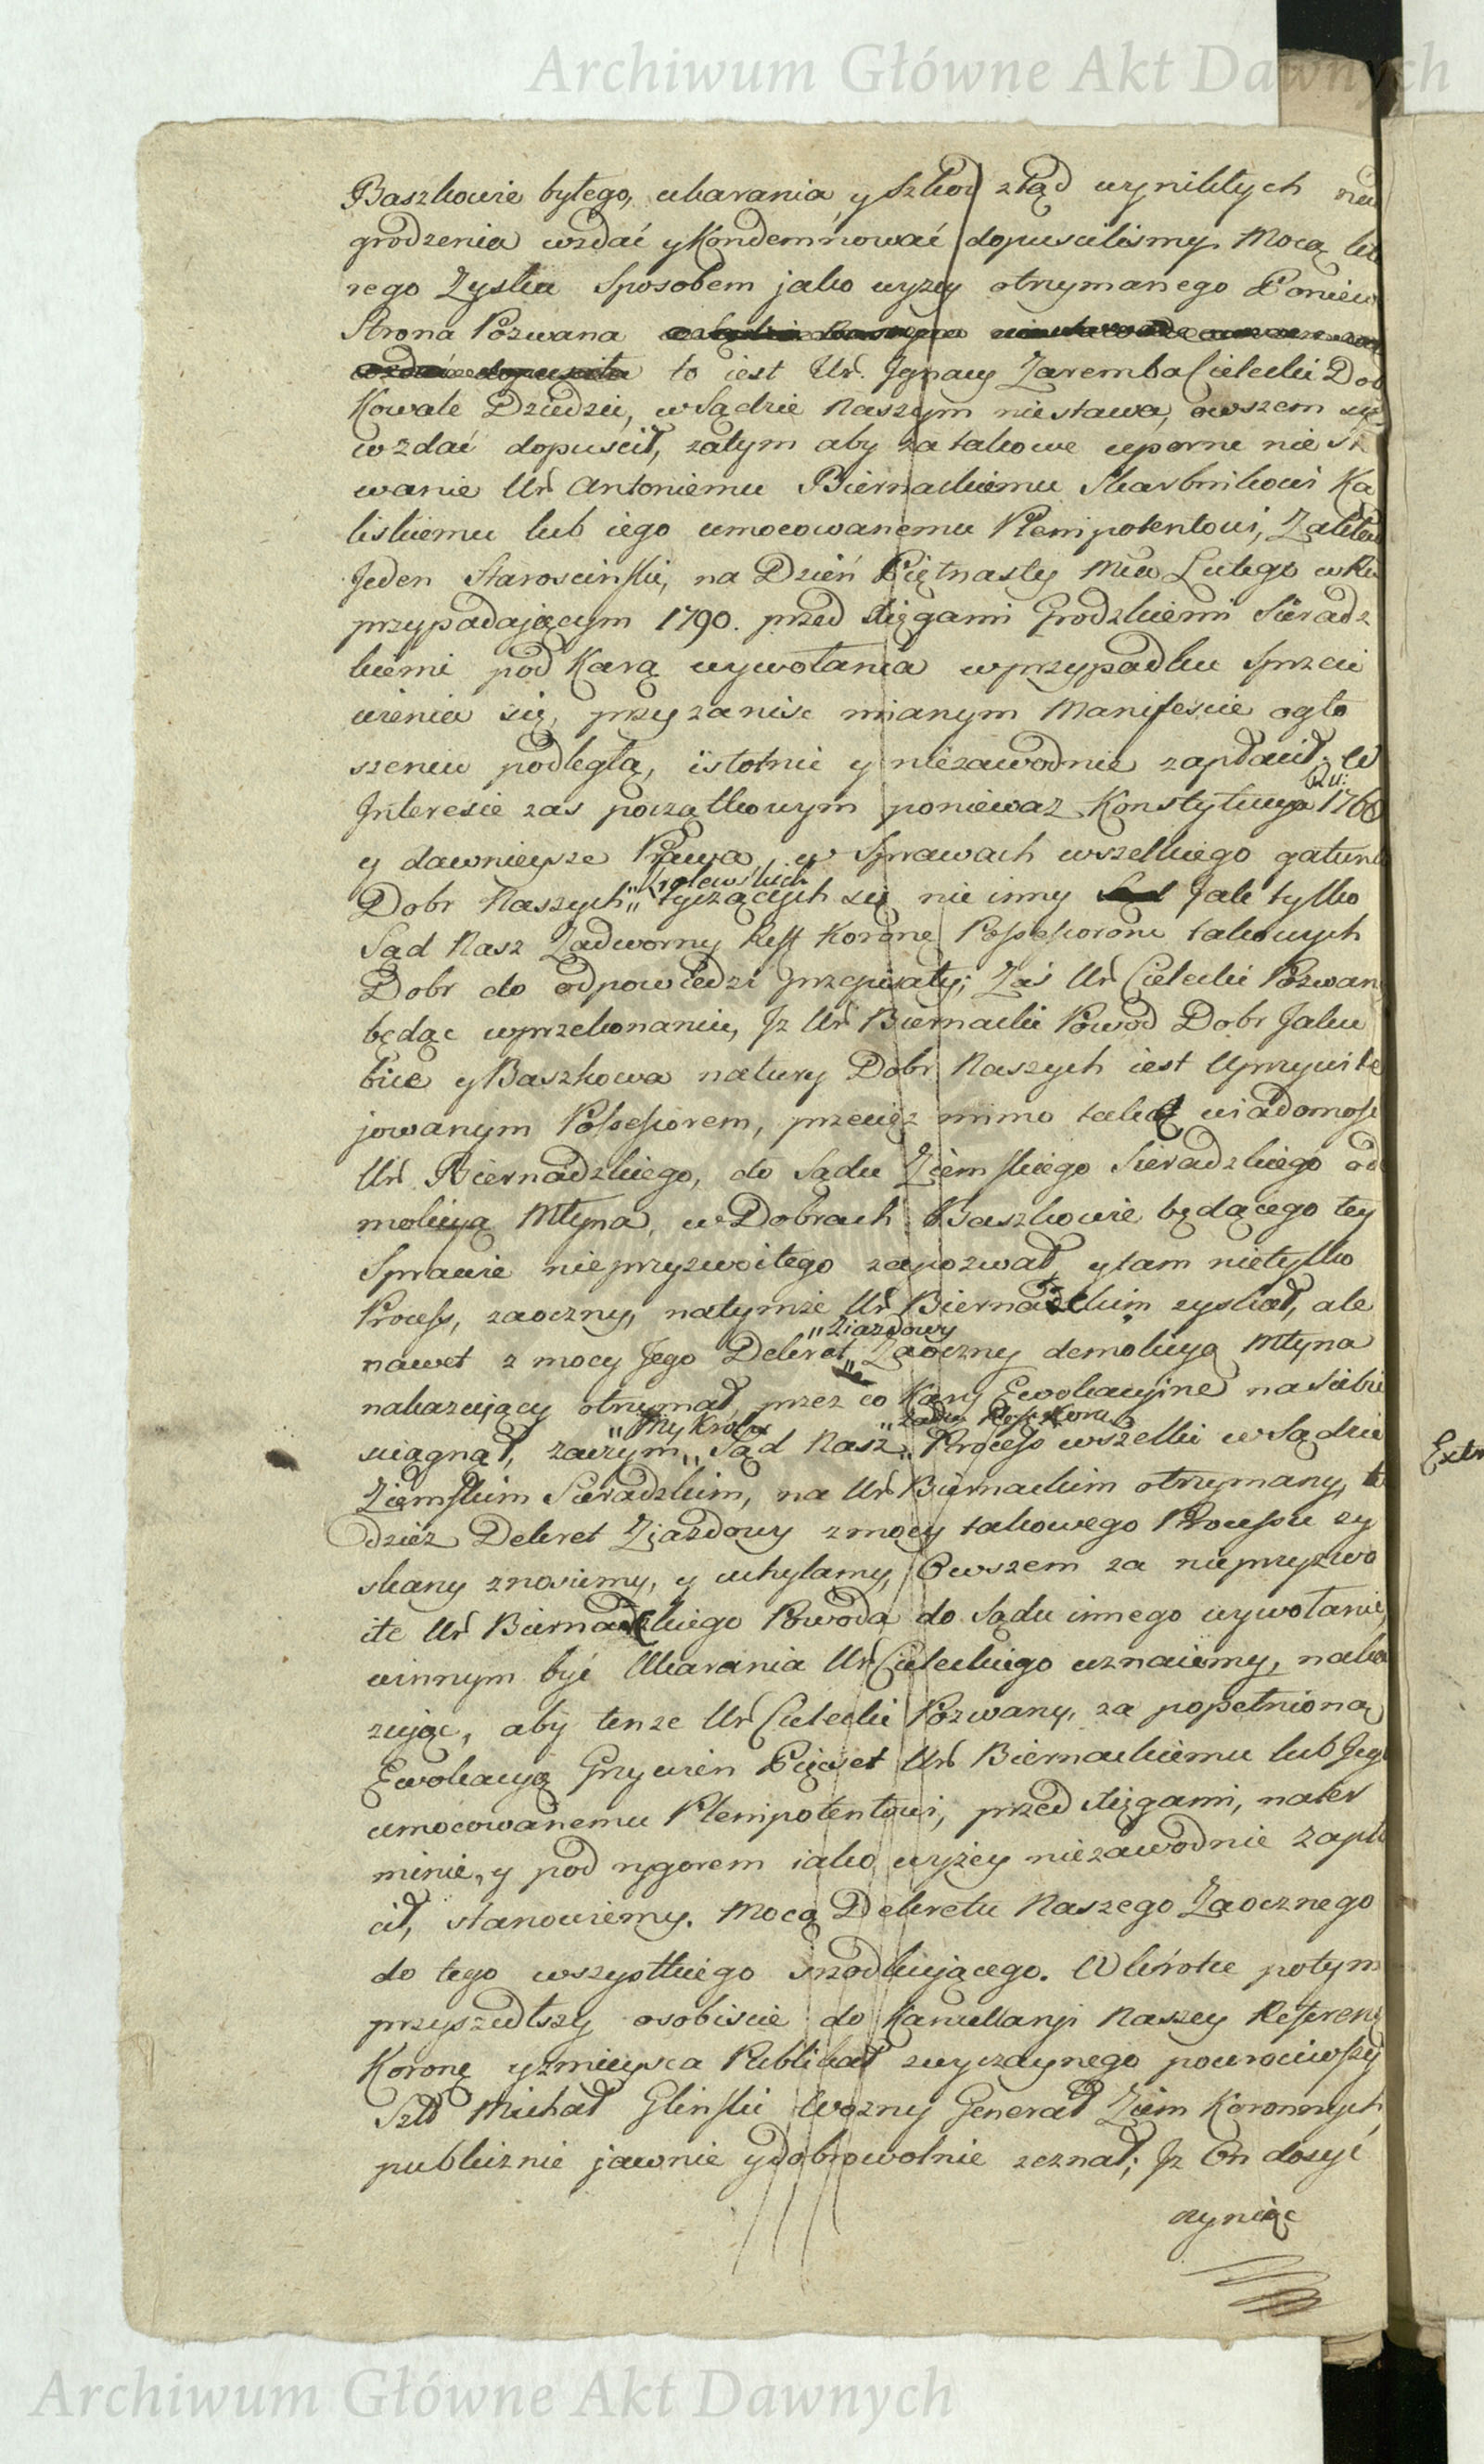 Archiwum Główne Akt Dawnych
Baszkowie byłego, ukarania, y szkod ztąd wynikłych na
grodzenia wzdać y Kondemnować dopuscilismy. Mocą kto
rego Zysku sposobem jako wyzey otrzymanego Poniew
Strona Pozwana
to iest Ur. Jgnacy Zaremba Cielecki Dob
Kowale Dziedzic, w Sądzie Naszym niestawa, owszem się
wzdać dopuscił, zatym aby za takowe uporne nie st
wanie Ur Antoniemu Biernackiemu Skarbnikowi Ka
liskiemu lub iego umocowanemu Plenipotentowi, Zakład
Jeden Starosciński, na Dzień Piętnasty Mca Lutego w Ro
przypadającym 1790. przed Xięgami Grodzkiemi Sieradz
kiemi pod Karą wywołania w przypadku Sprzeci
wienia się, przy zanieść mianym Manifescie ogło
szeniu podległą, istotnie y niezawodnie zapłacił. W
Qu:
Jnteresie zas początkowym poniewaz Konstytucya 1768
y dawnieysze Prawa, w Sprawach wszelkiego gatunk
Krolewskich
Dobr Naszych,, tyczących się nie inny Jak tylko
Sąd Nasz Zadworny Reff Koronę Possessorom takowych
Dobr do odpowiedzi przepisały; Zaś Ur Cielecki Pozwany
będąc w przekonaniu, Jz Ur Biernacki Powod Dobr Jaku
bice y Baszkowa natury Dobr Naszych iest Uprzywile
jowanym Possessorem, przecięz mimo taką wiadomość
Ur Biernadzkiego, do Sądu Ziemskiego Sieradzkiego o d
molicyą Młyna, w Dobrach Baszkowie będącego tey
Sprawie nieprzyzwoitego zapozwał, y tam nietylko
Process, zaoczny, natymże Ur Biernackim zyskał, ale
,,Ziazdowy
nawet z mocy Jego Dekret,, Zaoczny demolicyą Młyna
nakazujący otrzymał, przez co Kary Ewokacyine na siebie
,,My Krol z ,,Zadw. Reff. Koro.
sciągnął, zaczym,, Sąd Nasz,, Process wszelki w Sądzie
Ziemskim Sieradzkim, na Ur Biernackim otrzymany, t
dziez Dekret Zjazdowy z mocy takowego Processu zy
skany znosiemy, y uchylamy, Owszem za nieprzyzwo
ite Ur Biernadzkiego Powoda do Sądu innego wywołanie,
winnym być Ukarania Ur Cieleckiego uznaiemy, naka
zując, aby tenze Ur Cielecki Pozwany, za popełnioną
Ewokacyą Grzywien Pięćset Ur Biernackiemu lub Jego
umocowanemu Plenipotentowi, przed Xięgami, na ter
minie, y pod rygorem iako wyżey niezawodnie zapła
cił, stanowiemy. Mocą Dekretu Naszego Zaocznego
do tego wszystkiego srzodkującego. Wkrótce potym
przyszedłszy osobiscie do Kancellaryi Naszey Referen
Koronę y zmieysca Publikat zwyczaynego powrociwszy
Szld Michał Glinski Wozny Generał Ziem Koronnych
publicznie jawnie y dobrowolnie zeznał; Jz On dosyć
czyniąc
Extr
Archiwum Główne Akt Dawnych